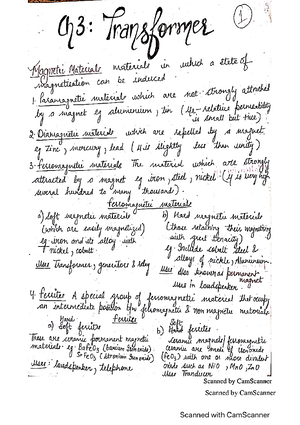 1
Ch 3: Transformer
Magnetic Materials materials in which a state of
magnetisation can be induced
1. Paramagnetic materials which are not strongly attracted
by a magnet eg aluminium, tin (μ-relative permeability
is small but tive)
2. Diamagnetic materials which are repelled by a magnet
eg Zinc, mercury, lead (μ is slightly less than unity)
3. Ferromagnetic materials The material which are strongly
attracted by a magnet eg iron, steel, nickel (μ is very high
several hundred to many thousand).
Ferromagnetic materials
a) Soft magnetic materials
(which are easily magnetised)
eg iron and its alloy with
nickel, cobalt
Uses Transformer, generators & relay
b) Hard magnetic materials
(those retaining their magnetism
with great tenacity)
eg. Include cobalt steel &
alloys of nickel, aluminium.
Uses Also known as permanent
magnet
in loudspeaker.
4. Ferrites A special group of ferromagnetic material that occupy
an intermediate position b/w ferromagnetic & non magnetic materials
Ferrites
Hard
a) Soft ferrites
These are ceramic permanent magnetic
materials. eg:
Uses: loudspeaker, telephone
Soft
b) Hard ferrites
ceramic magnets/ferromagnetic
ceramic are made of
with one or more divalent
oxide such as NiO, MnO, ZnO
Uses Transducer
Scanned by CamScanner
Scanned by CamScanner
Scanned with CamScanner